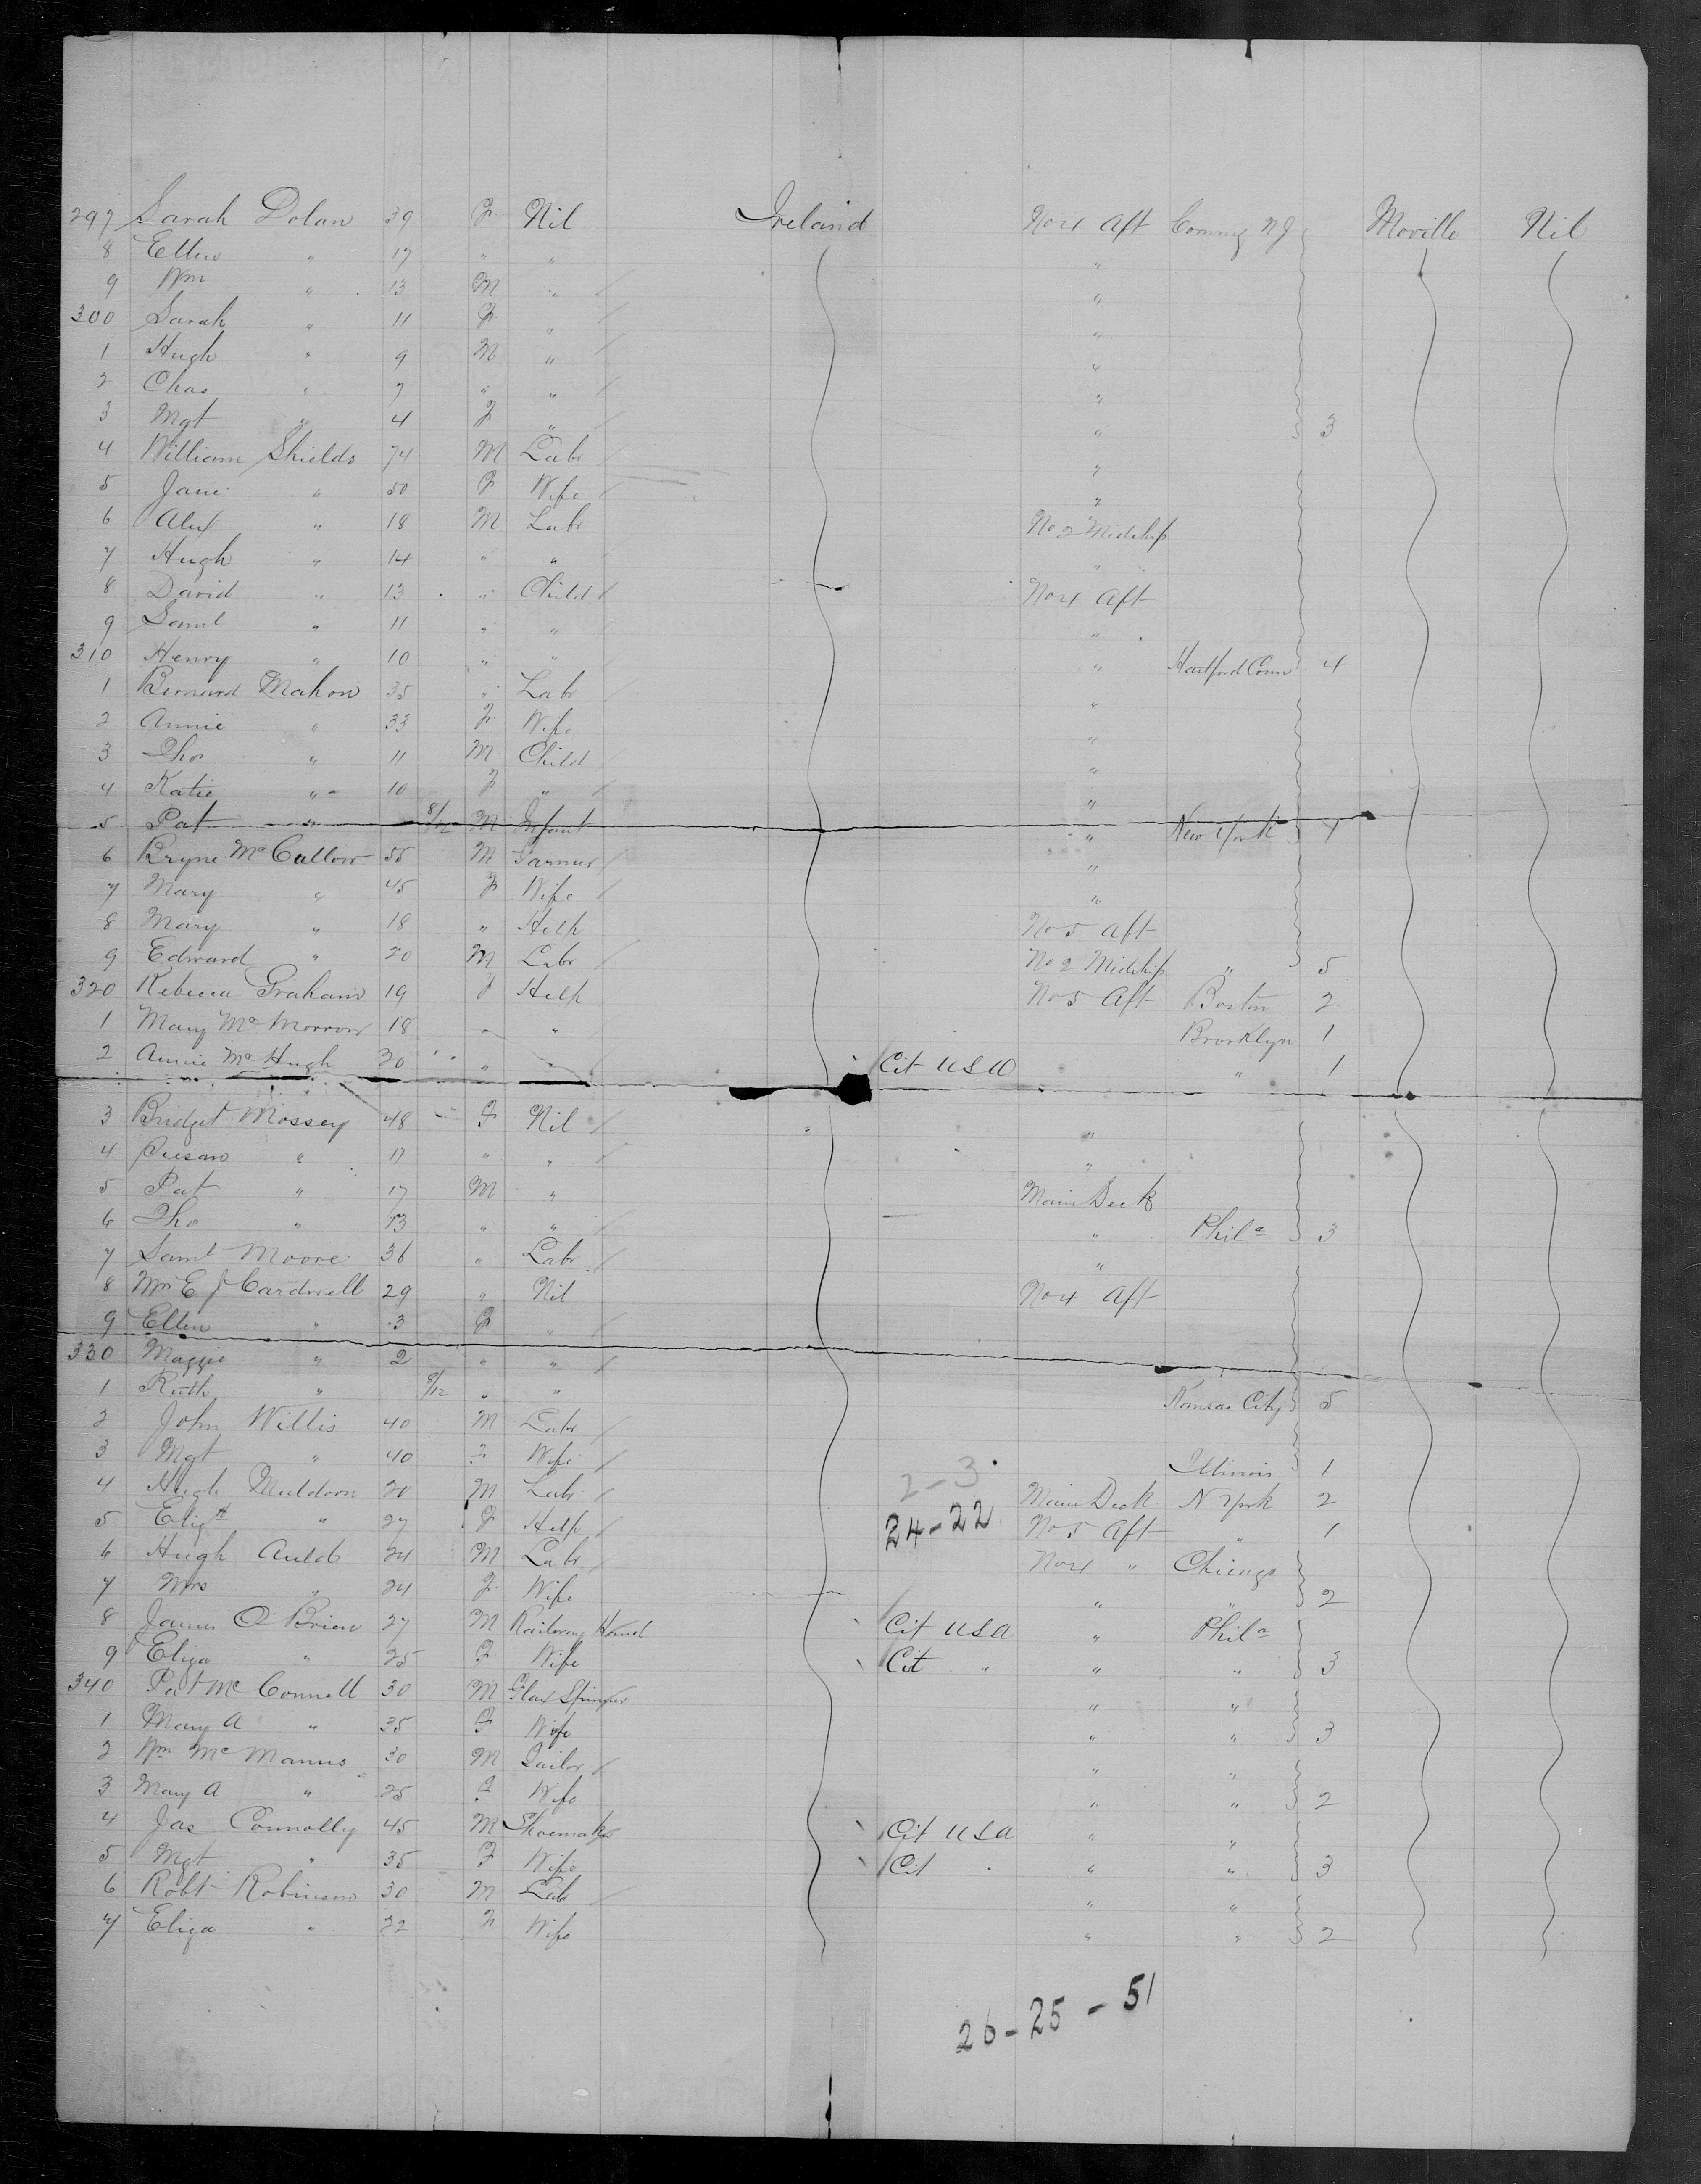 297 Sarah Dolan 39 F Nil Ireland No 4 Aft Corning NJ Moville Nil
8 Ellen " 17 " " "
9 Wm " 13 M " "
300 Sarah " 11 F " "
1 Hugh " 9 M " "
2 Chas " 7 " " "
3 Mgt " 4 F " " 3
4 William Shields 74 M Labr "
5 Jane " 50 F Wife "
6 Alex " 18 M Labr No 2 Midship
7 Hugh " 14 " " "
8 David " 13 " Child No 4 Aft
9 Saml " 11 " " "
310 Henry " 10 " " " Hartford Conn 4
1 Bernard Mahon 35 " Labr "
2 Annie " 33 F Wife "
3 Tho " 11 M Child "
4 Katie " 10 F " "
5 Pat " 8/12 M Infant " New York 4
6 Bryne McCallow 55 M Farmer "
7 Mary " 45 F Wife "
8 Mary " 18 " Help No 5 Aft
9 Edward " 20 M Labr No 2 Midship " 5
320 Rebecca Graham 19 F Help No 5 Aft Boston 2
1 Mary McMorrow 18 " " Brooklyn 1
2 Annie McHugh 30 " " Cit USA " 1
3 Bridget Mossey 48 F Nil "
4 Susan " 17 " " "
5 Pat " 17 M " Main Deck
6 Tho " 13 " " " Phila 3
7 Saml Moore 36 " Labr "
8 Mrs E J Cardwell 29 " Nil No 4 Aft
9 Ellen " 3 F "
330 Maggie " 2 " "
1 Ruth " 8/12 " " Kansas City 5
2 John Willis 40 M Labr
3 Mgt " 40 F Wife Illinois 1
2-3
4 Hugh Muldoon 20 M Labr Main Deck N York 2
24-22
5 Elizth " 27 F Help No 5 Aft " 1
6 Hugh Auld 24 M Labr No 4 " Chicago
7 Mrs " 24 F Wife " " 2
8 James O'Brien 27 M Railway Hand Cit USA " Phila
9 Eliza " 25 F Wife Cit " " " 3
340 Pat McConnell 30 M Flax Spinner " "
1 Mary A " 35 F Wife " " 3
2 Wm McManus 30 M Tailor " "
3 Mary A " 25 F Wife " " 2
4 Jas Connolly 45 M Shoemaker Cit USA " "
5 Mgt " 35 F Wife Cit " " 3
6 Robt Robinson 30 M Labr " "
7 Eliza " 32 F Wife " " 2
26-25-51